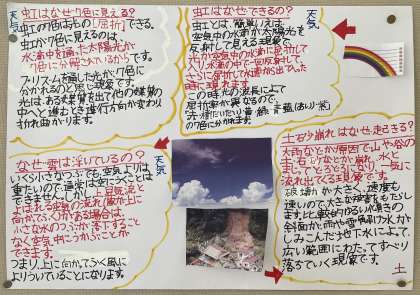 虹はなぜ七色に見える?
虹の七色はもの「屈折」できる。
虹が七色に見えるのは、
水滴中を通った太陽光が
七色に分解されているからです。
プリズムを通した光が七色に
分かれるのと同じ現象です。
光は、ある媒質を出て他の媒質の
中へと進むとき進行方向が変わり
折れ曲がります。
天気
虹はなぜできる?
虹とは、簡単にいえば
空気中の水滴が太陽光を
反射して見える現象です。
光が空気中の水滴に屈折して
入り、水滴の中で一回反射して、
さらに屈折して水滴から出ていった
時に現れます。
この時光の波長によって
屈折率が異なるので、
の七色に分かれます。
天気
なぜ雲は浮いているの?
いくら小さなつぶでも、空気よりは
重たいので、通常は空にうかぶことは
できません。しかし、上昇気流と
よばれる空気の流れ(風が上に
向かってふく)がある場合は、
小さな水のつぶが落下すること
なく空気中にうかぶことが
できます。
つまり、上に向かってふく風に
よりういていることになります。
天気
土石崩れはなぜ起きる?
大雨などが原因で山や谷の
土・石・砂などが崩れ、水と
まじってどろどろになり、一気に
流れ出てくる現象です。
規模が大きく、速度も
速いので、大きな被害をもたらし
ます。比較的ゆるい傾きの
斜面が、雨や雪解け水が
しみこんだ地下水によって、
広い範囲にわたってすべり
落ちていく現象です。
土